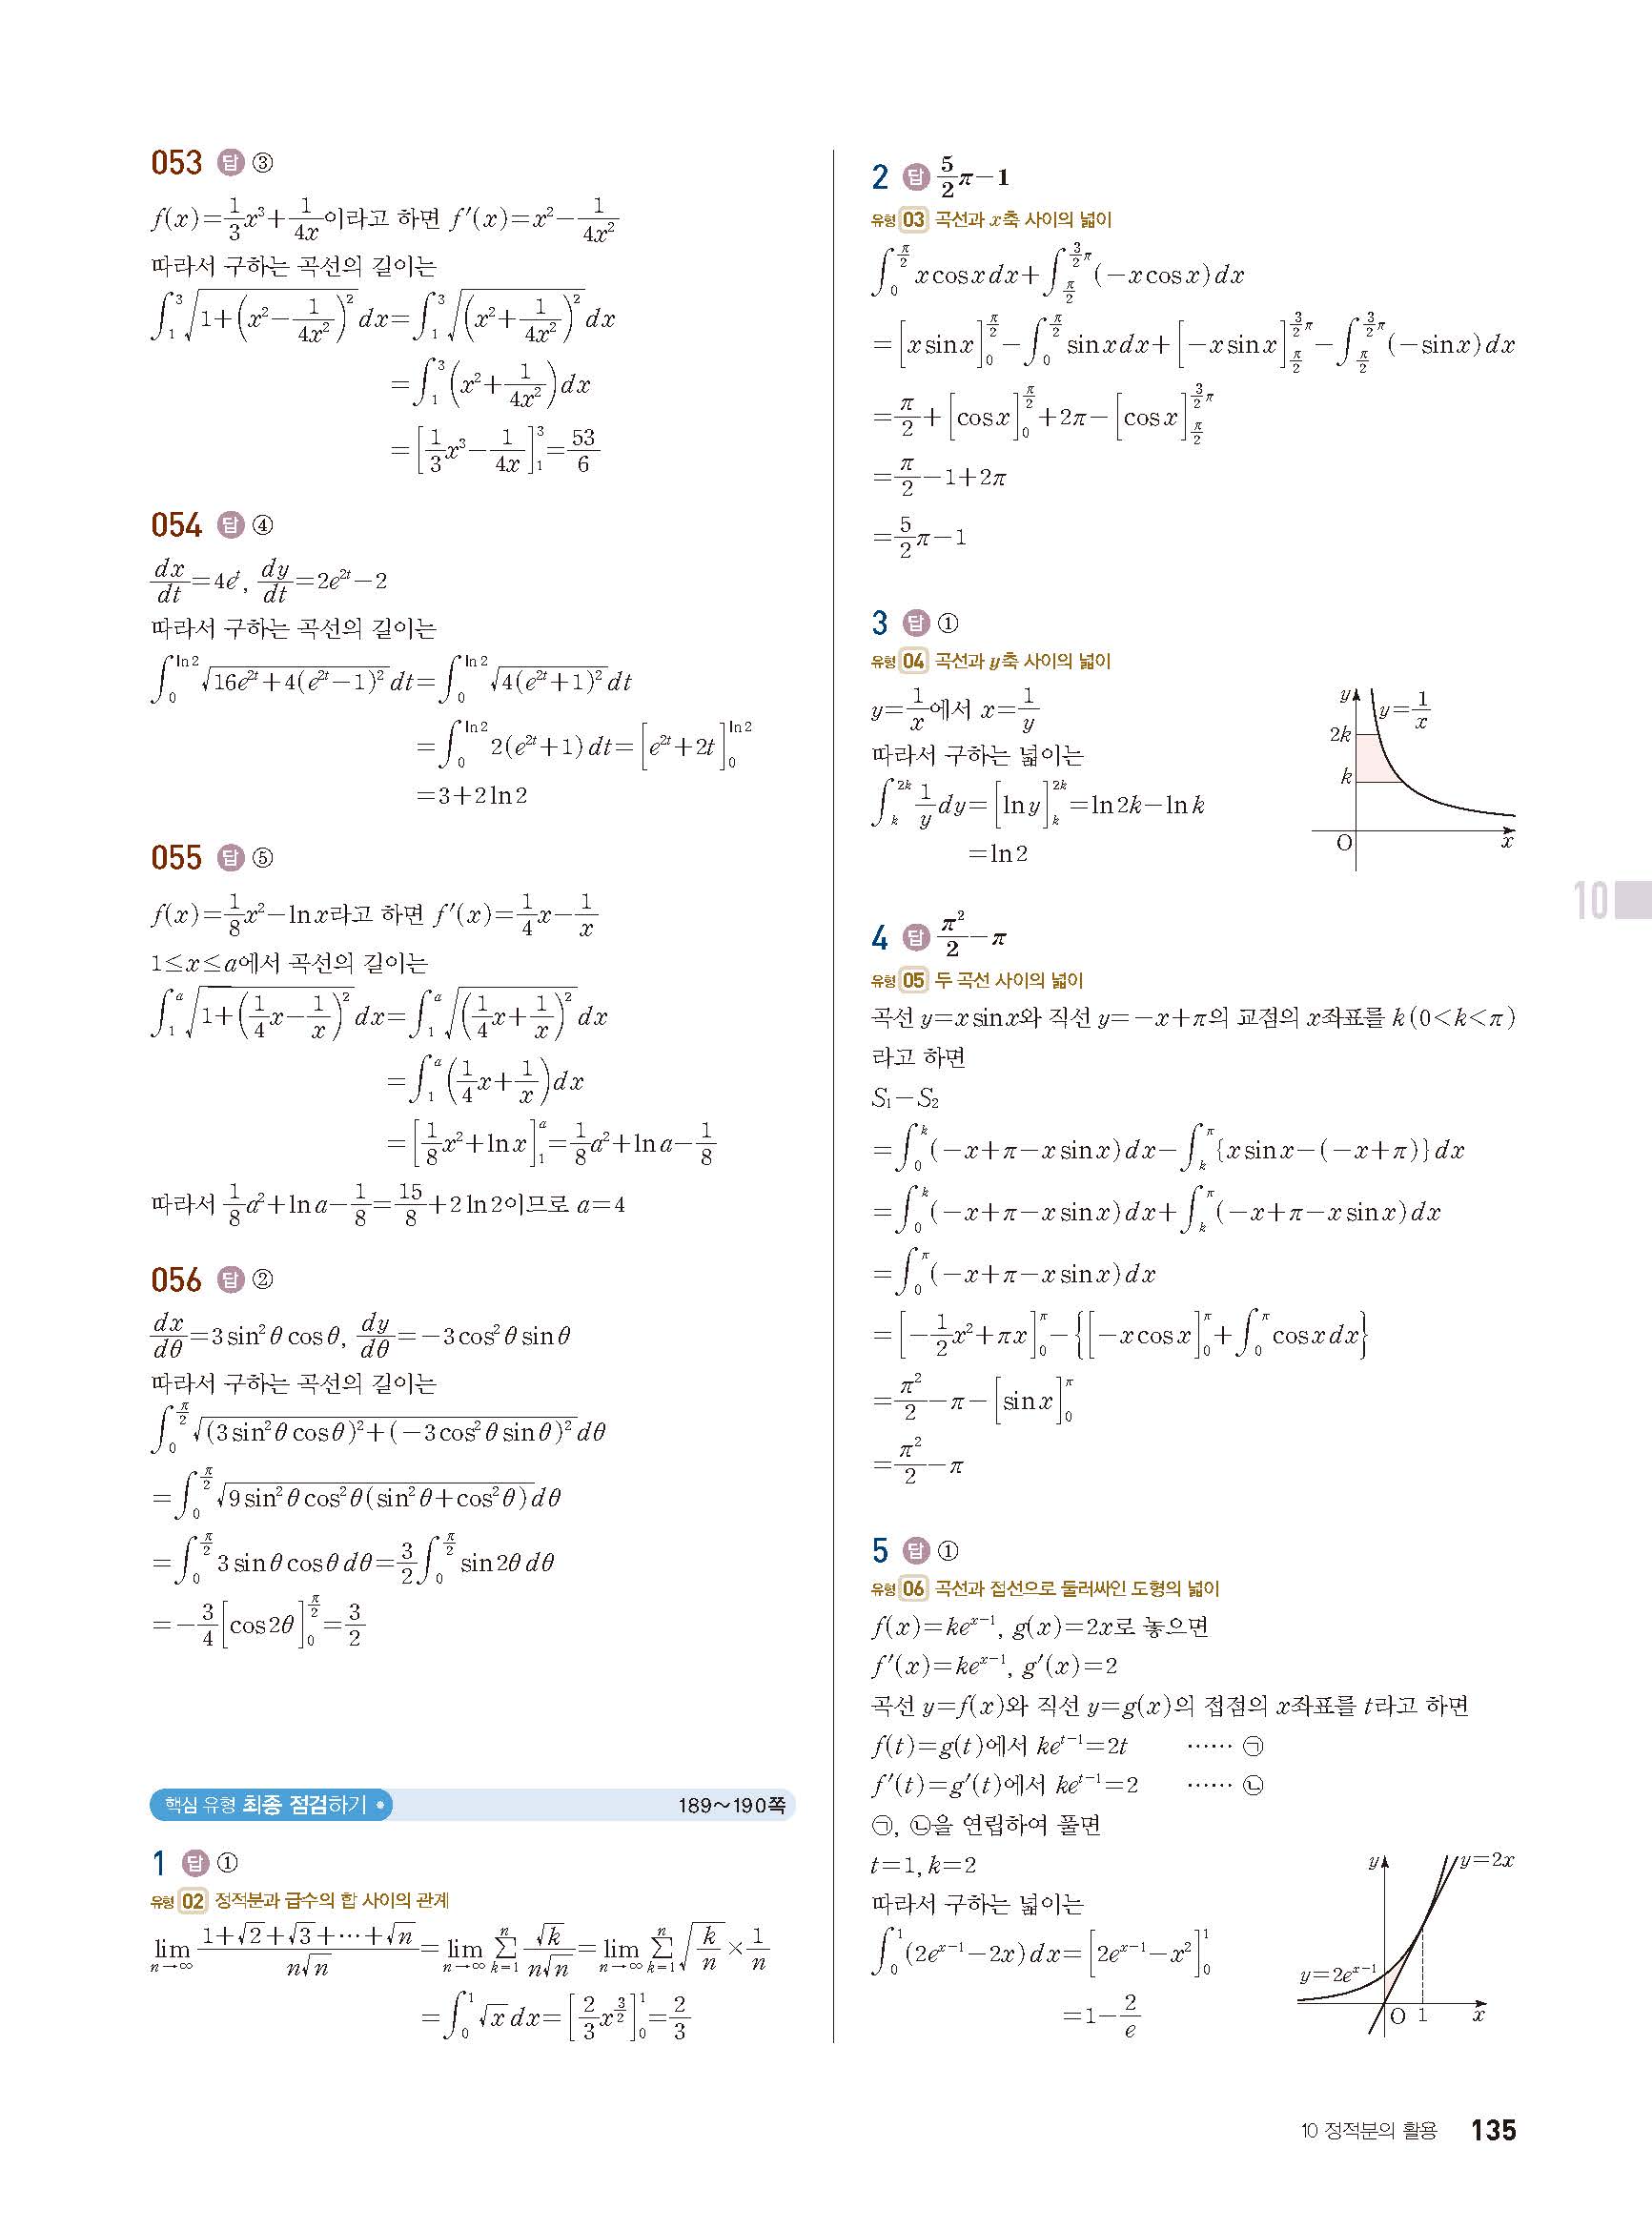 053 답 ③
f(x)=1/3x³+1/4x이라고 하면 f′(x)=x²-1/4x²
따라서 구하는 곡선의 길이는
∫₁³√(1+(x²-1/4x²)²)dx=∫₁³√((x²+1/4x²)²)dx
=∫₁³(x²+1/4x²)dx
=[1/3x³-1/4x]₁³=53/6
054 답 ④
dx/dt=4eᵗ, dy/dt=2e²ᵗ-2
따라서 구하는 곡선의 길이는
∫₀^(ln2)√(16e²ᵗ+4(e²ᵗ-1)²)dt=∫₀^(ln2)√(4(e²ᵗ+1)²)dt
=∫₀^(ln2)2(e²ᵗ+1)dt=[e²ᵗ+2t]₀^(ln2)
=3+2ln2
055 답 ⑤
f(x)=1/8x²-lnx라고 하면 f′(x)=1/4x-1/x
1≤x≤a에서 곡선의 길이는
∫₁ᵃ√(1+(1/4x-1/x)²)dx=∫₁ᵃ√((1/4x+1/x)²)dx
=∫₁ᵃ(1/4x+1/x)dx
=[1/8x²+lnx]₁ᵃ=1/8a²+lna-1/8
따라서 1/8a²+lna-1/8=15/8+2ln2이므로 a=4
056 답 ②
dx/dθ=3sin²θcosθ, dy/dθ=-3cos²θsinθ
따라서 구하는 곡선의 길이는
∫₀^(π/2)√((3sin²θcosθ)²+(-3cos²θsinθ)²)dθ
=∫₀^(π/2)√(9sin²θcos²θ(sin²θ+cos²θ))dθ
=∫₀^(π/2)3sinθcosθdθ=3/2∫₀^(π/2)sin2θdθ
=-3/4[cos2θ]₀^(π/2)=3/2
핵심 유형 최종 점검하기 189~190쪽
1 답 ①
유형 02 정적분과 급수의 합 사이의 관계
lim(n→∞) (1+√2+√3+⋯+√n)/(n√n)=lim(n→∞) Σ(k=1, n) √k/(n√n)=lim(n→∞) Σ(k=1, n) √(k/n)×1/n
=∫₀¹√x dx=[2/3x^(3/2)]₀¹=2/3
2 답 5/2π-1
유형 03 곡선과 x축 사이의 넓이
∫₀^(π/2)xcosxdx+∫_(π/2)^(3/2π)(-xcosx)dx
=[xsinx]₀^(π/2)-∫₀^(π/2)sinxdx+[-xsinx]_(π/2)^(3/2π)-∫_(π/2)^(3/2π)(-sinx)dx
=π/2+[cosx]₀^(π/2)+2π-[cosx]_(π/2)^(3/2π)
=π/2-1+2π
=5/2π-1
3 답 ①
유형 04 곡선과 y축 사이의 넓이
y=1/x에서 x=1/y
따라서 구하는 넓이는
∫ₖ²ᵏ1/y dy=[lny]ₖ²ᵏ=ln2k-lnk
=ln2
y
y=1/x
2k
k
O
x
4 답 π²/2-π
유형 05 두 곡선 사이의 넓이
곡선 y=xsinx와 직선 y=-x+π의 교점의 x좌표를 k(0<k<π)
라고 하면
S₁-S₂
=∫₀ᵏ(-x+π-xsinx)dx-∫ₖ^π{xsinx-(-x+π)}dx
=∫₀ᵏ(-x+π-xsinx)dx+∫ₖ^π(-x+π-xsinx)dx
=∫₀^π(-x+π-xsinx)dx
=[-1/2x²+πx]₀^π-{[-xcosx]₀^π+∫₀^πcosxdx}
=π²/2-π-[sinx]₀^π
=π²/2-π
5 답 ①
유형 06 곡선과 접선으로 둘러싸인 도형의 넓이
f(x)=keˣ⁻¹, g(x)=2x로 놓으면
f′(x)=keˣ⁻¹, g′(x)=2
곡선 y=f(x)와 직선 y=g(x)의 접점의 x좌표를 t라고 하면
f(t)=g(t)에서 keᵗ⁻¹=2t ⋯⋯ ㉠
f′(t)=g′(t)에서 keᵗ⁻¹=2 ⋯⋯ ㉡
㉠, ㉡을 연립하여 풀면
t=1, k=2
따라서 구하는 넓이는
∫₀¹(2eˣ⁻¹-2x)dx=[2eˣ⁻¹-x²]₀¹
=1-2/e
y
y=2x
y=2eˣ⁻¹
O 1 x
10
10 정적분의 활용 135